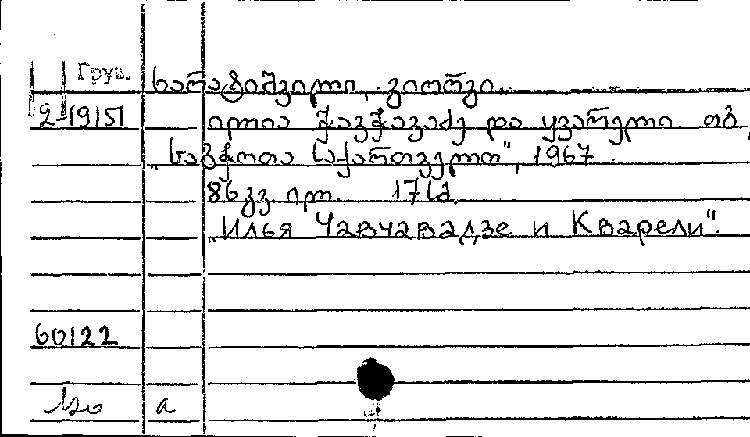 Груз. ხარატიშვილი, გიორგი.
2-19151 ილია ჭავჭავაძე და ყვარელი თბ,
„საბჭოთა საქართველო", 1967.
86 გვ. ილ. 17 სმ
„Илья Чавчавадзе и Кварели".
60122
а